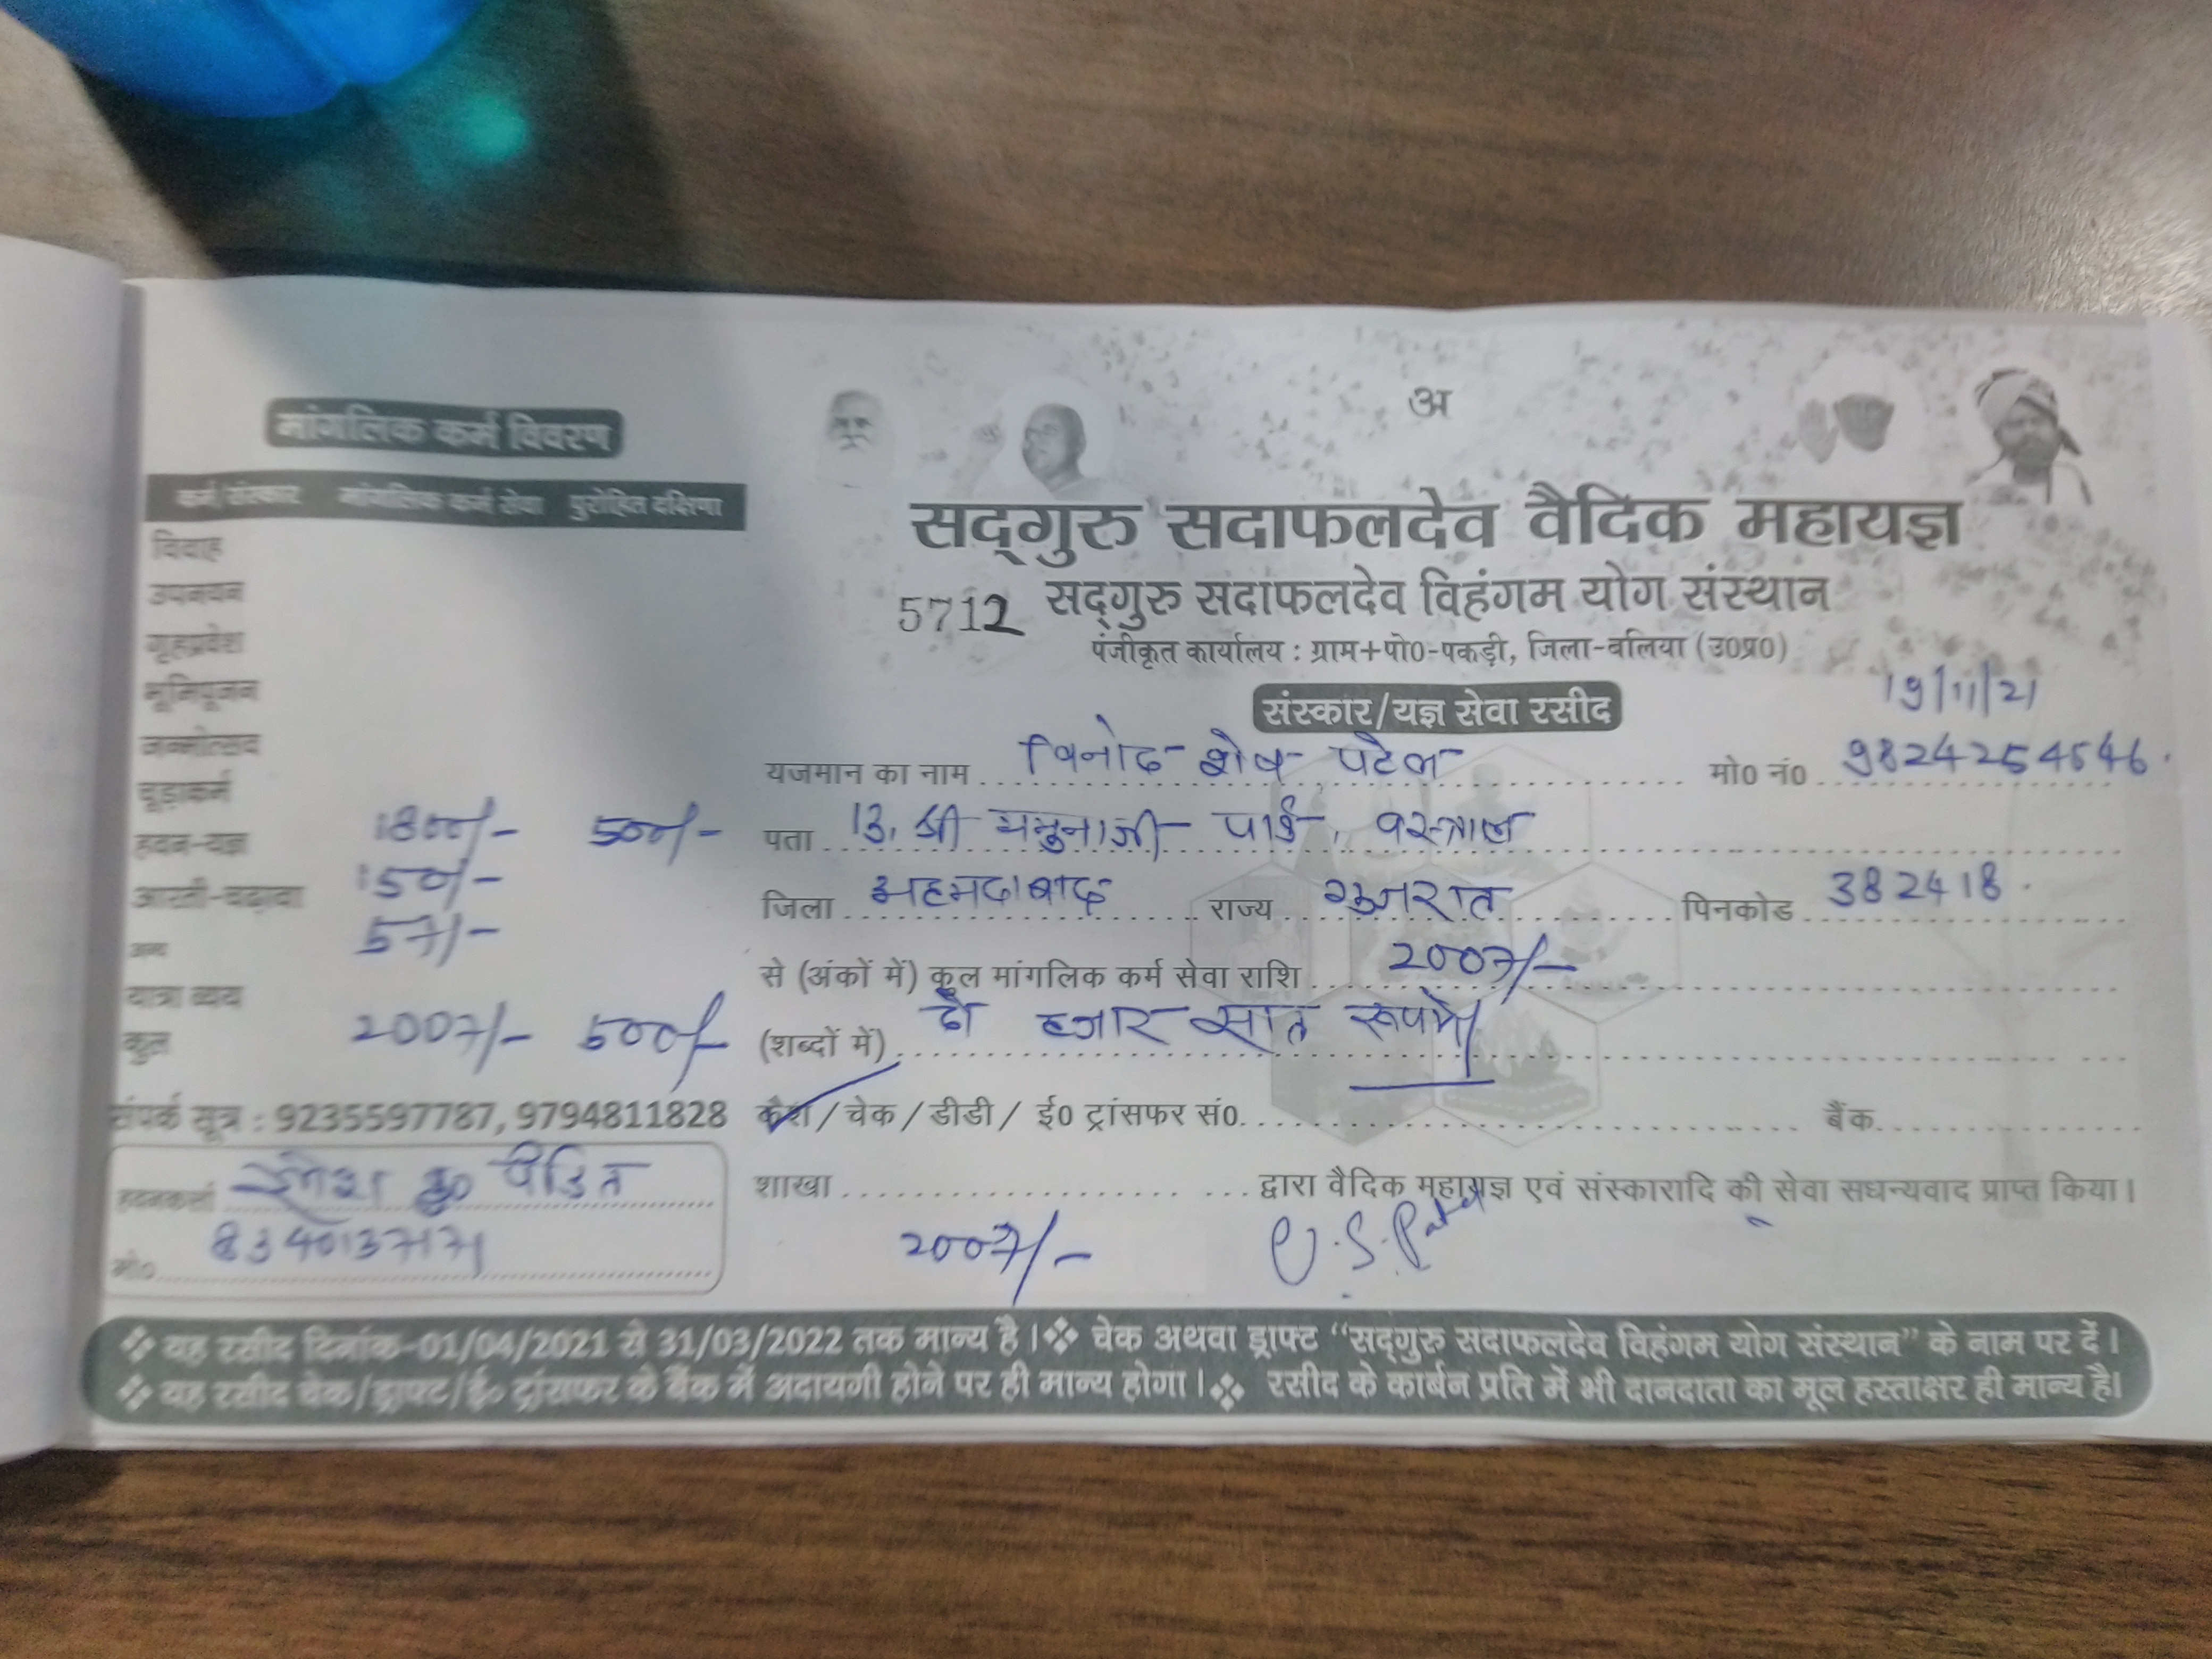 मांगलिक कर्म विवरण
कर्म/संस्कार मांगलिक कर्म सेवा पुरोहित दक्षिणा
विवाह
उपनयन
गृहप्रवेश
भूमिपूजन
जन्मोत्सव
चूड़ाकर्म
हवन-यज्ञ 1800/- 500/-
आरती-चढ़ावा 150/-
अन्य 57/-
यात्रा व्यय
कुल 2007/- 500/-
संपर्क सूत्र : 9235597787, 9794811828
हवनकर्ता कु0 पंडित
मो0 8340137171
अ
सद्गुरु सदाफलदेव वैदिक महायज्ञ
5712 सद्गुरु सदाफलदेव विहंगम योग संस्थान
पंजीकृत कार्यालय : ग्राम+पो0-पकड़ी, जिला-बलिया (उ0प्र0)
संस्कार/यज्ञ सेवा रसीद 19/11/21
यजमान का नाम विनोद पटेल मो0 नं0 9824254546
पता 13, श्री यमुनाजी पार्क, वस्त्राल
जिला अहमदाबाद राज्य गुजरात पिनकोड 382418
से (अंकों में) कुल मांगलिक कर्म सेवा राशि 2007/-
(शब्दों में) दो हजार सात रूपये
कैश/चेक/डीडी/ ई0 ट्रांसफर सं0 बैंक
शाखा द्वारा वैदिक महायज्ञ एवं संस्कारादि की सेवा सधन्यवाद प्राप्त किया।
2007/- V.S. Patel
❖ यह रसीद दिनांक-01/04/2021 से 31/03/2022 तक मान्य है।❖ चेक अथवा ड्राफ्ट “सद्गुरु सदाफलदेव विहंगम योग संस्थान” के नाम पर दें।
❖ यह रसीद चेक/ड्राफ्ट/ई0 ट्रांसफर के बैंक में अदायगी होने पर ही मान्य होगा।❖ रसीद के कार्बन प्रति में भी दानदाता का मूल हस्ताक्षर ही मान्य है।